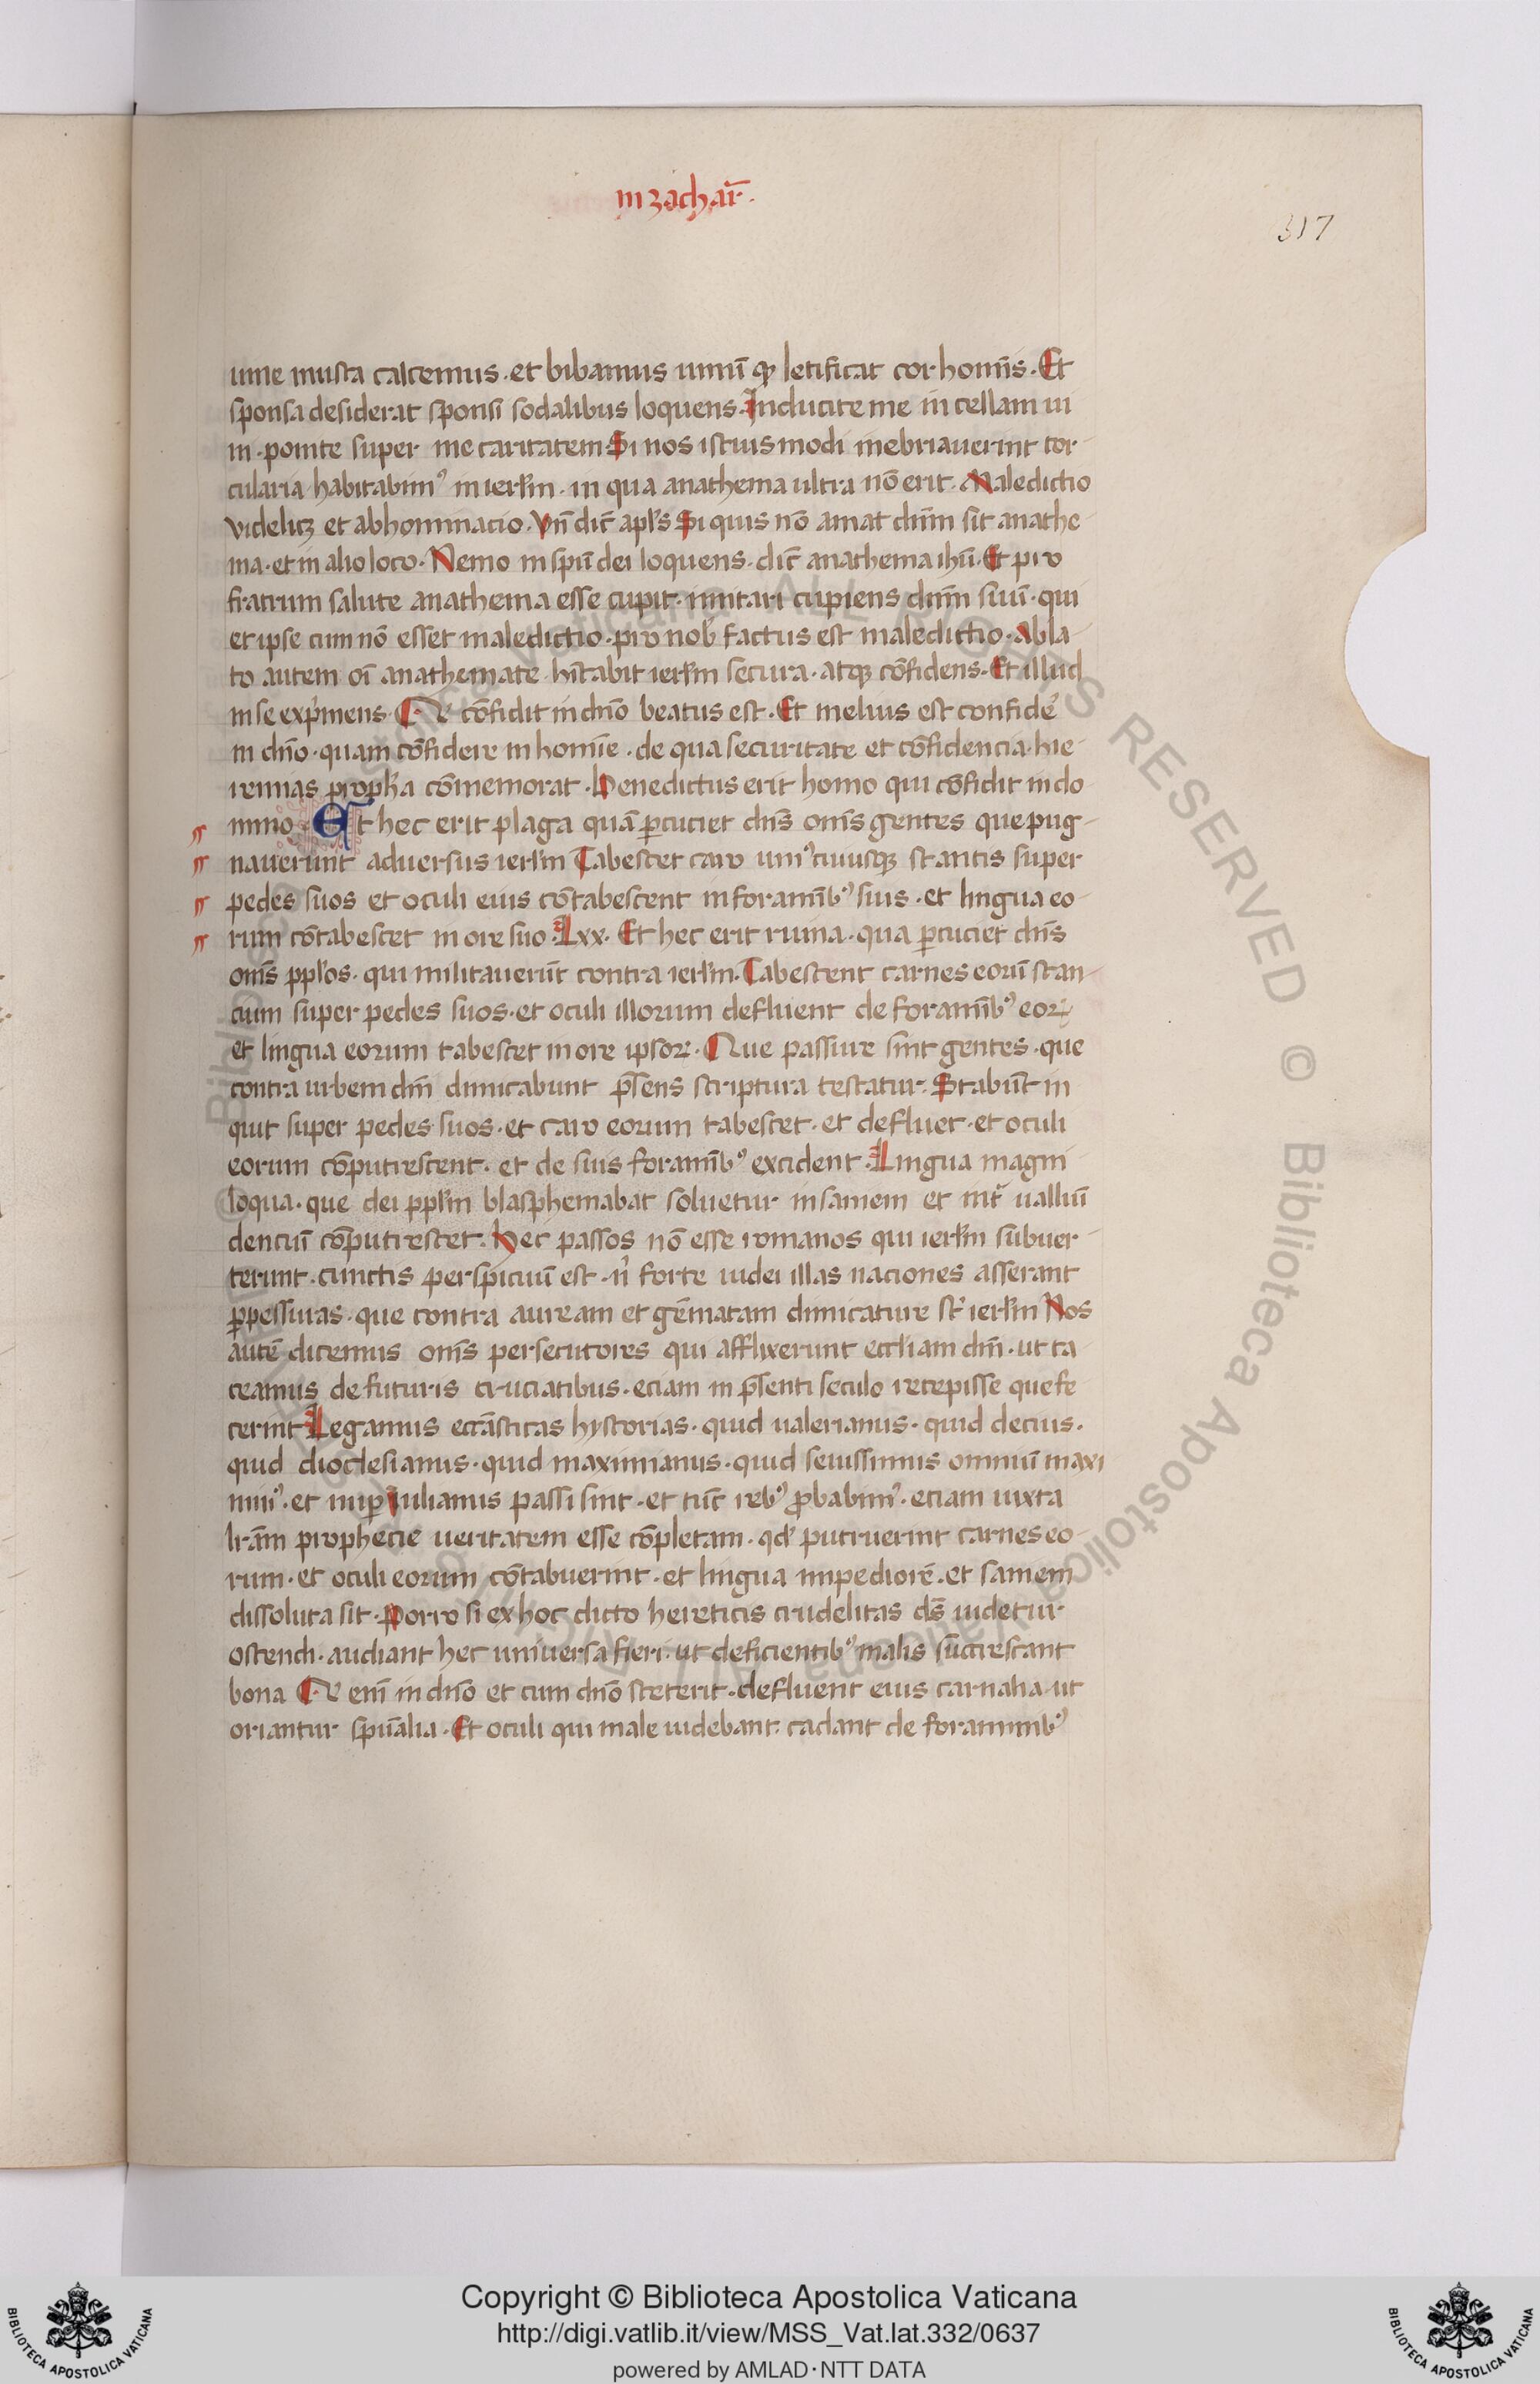 in zachar̄.
317
uine musta calcemus · et bibamus uinū qđ letificat cor hoīs · Et
sponsa desiderat sponsi sodalibus loquens · Inducite me in cellam ui
ni · ponite super me caritatem Si nos istiusmodi inebriauerint tor
cularia habitabimꝰ in ierl̄m · in qua anathema ultra nō erit · Maledictio
videlicꝫ et abhominacio · Vn̄ dic̄ apl̄s Si quis nō amat dn̄m sit anathe
ma · et in alio loco · Nemo in spū dei loquens · dic̄ anathema ihū · Et pro
fratrum salute anathema esse cupit · imitari cupiens dn̄m suū · qui
et ipse cum nō esset maledictio · pro nob̄ factus est maledictio · Abla
to autem oī anathemate hītabit ierl̄m secura · atqꝫ cōfidens · Et illud
in se exp̄mens · Qe cōfidit in dn̄o beatus est · Et melius est confidē
in dn̄o · quam cōfidere in homīe · de qua securitate et cōfidencia · hie
remias proph̄a cōmemorat · Benedictus erit homo qui cōfidit in do
mino · Et hec erit plaga quā ꝑcuciet dn̄s om̄s gentes que pug
nauerunt aduersus ierl̄m Tabescet caro uniꝰcuiusqꝫ stantis super
pedes suos et oculi eius cōtabescent in foramībꝰ suis · et lingua eo
rum cōtabescet in ore suo · Lxx · Et hec erit ruina · qua ꝑcuciet dn̄s
om̄s ppl̄os · qui militauerūt contra ierl̄m · Tabescent carnes eorū stan
cium super pedes suos · et oculi illorum defluent de foramībꝰ eorꝝ
et lingua eorum tabescet in ore ipsorꝝ · Que passure sint gentes · que
contra urbem dn̄i dimicabunt p̄sens scriptura testatur · Stabūt in
quit super pedes suos · et caro eorum tabescet · et defluet · et oculi
eorum cōputrescent · et de suis foramībꝰ excident · Lingua magni
loqua · que dei ppl̄m blasphemabat soluetur in saniem et int̄ ualliū
dentiū cōputrescet · Hec passos nō esse romanos qui ierl̄m subuer
terunt · cunctis perspicuū est · n̄ forte iudei illas naciones asserant
ꝑpessuras · que contra auream et gēmatam dimicature st̄ ierl̄m Nos
autē dicemus om̄s persecutores qui afflixerunt eccl̄iam dn̄i · ut ta
ceamus de futuris cruciatibus · eciam in p̄senti seculo recepisse que fe
cerint Legamus eccāsticas hystorias · quid ualerianus · quid decius ·
quid dioclesianus · quid maximianus · quid seuissimus omniū maxi
minꝰ · et nuꝑ Iulianus passi sint · et tūc rebꝰ ꝓbabimꝰ · eciam iuxta
lr̄am prophecie ueritatem esse cōpletam · qđ putruerint carnes eo
rum · et oculi eorum cōtabuerint · et lingua in pediorē · et saniem
dissoluta sit · Porro si ex hoc dicto hereticis crudelitas dī uidetur
ostendi · audiant hec uniuersa fieri · ut deficientibꝰ malis succrescant
bona Qe eni in dn̄o et cum dn̄o steterit · defluent eius carnalia · ut
oriantur spūalia · Et oculi qui male uidebant · cadant de foraminibꝰ
Copyright © Biblioteca Apostolica Vaticana
http://digi.vatlib.it/view/MSS_Vat.lat.332/0637
powered by AMLAD·NTT DATA